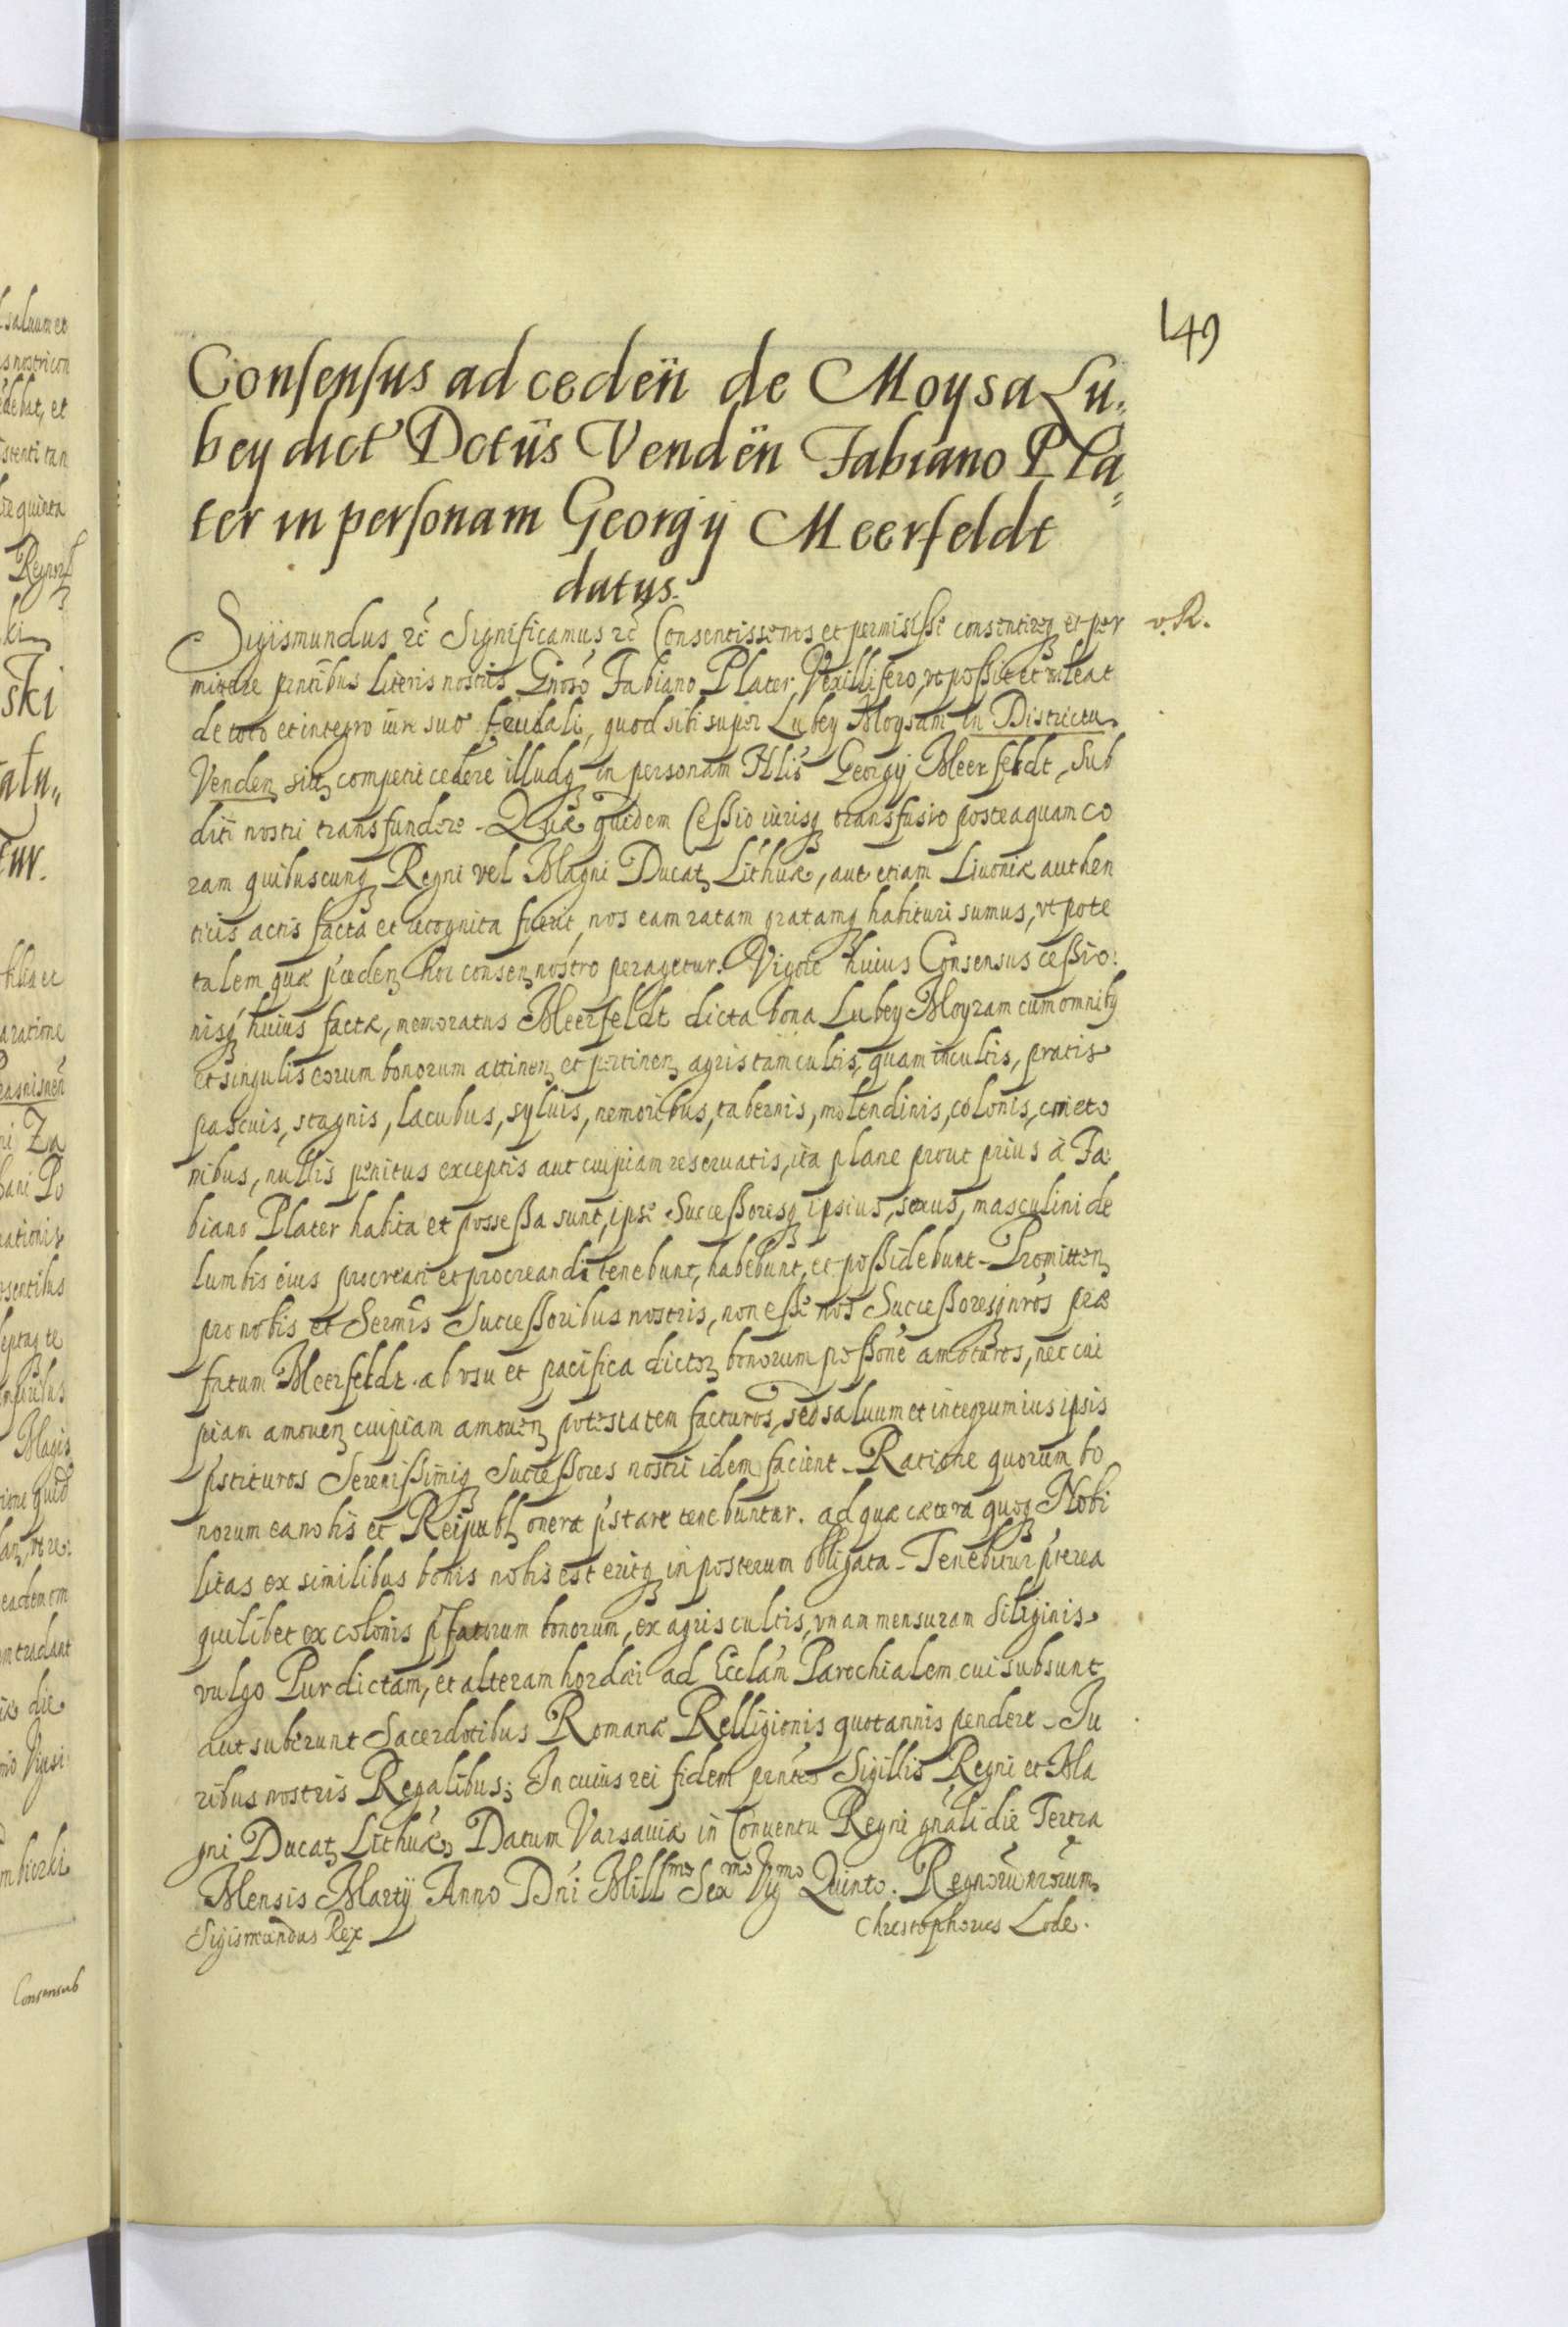 149
Consensus ad cedeñ de Moysa Lu„
bey dict' Dctũs Vendeñ Fabiano Pla„
ter in personam Georgij Meerfeldt
datus.
Sigismundus rc̃ Significamus rc̃ Consentisse nos et permisisse consentireq₃ et per v. R.
mittere pntibus literis nostris Gnoso Fabiano Plater, Vexillifero, vt possit et valeat
de toto et integro iure suo feudali, quod sibi super Lubey Moysam in Districtu
Venden sitꝫ competit cedere illudq₃ in personam Nlis Georgij Meerfeldt, Sub
diti nostri transfundere. Quæ quidem Cessio iurisq₃ transfusio posteaquam co
ram quibuscunq₃ Regni vel Magni Ducatꝫ Lithuæ, aut etiam Liuoniæ authen
ticis actis facta et recognita fuerit, nos eam ratam gratamq₃ habituri sumus, vt pote
talem quæ præcedenꝫ hoc consenꝫ nostro peragetur. Vigore huius Consensus cessio
nisq₃ huius factæ, memoratus Meerfeldt dicta bona Lubey Moyzam cum omnibꝫ
et singulis eorum bonorum attinenꝫ et pertinenꝫ agris tam cultis, quam incultis, pratis
pascuis, stagnis, lacubus, syluis, nemoribus, tabernis, molendinis, colonis, cmeto
nibus, nullis penitus exceptis aut cuipiam reseruatis, ita plane prout prius à Fa
biano Plater habita et possessa sunt, ipse Successoresq₃ ipsius, sexus, masculini de
lumbis eius procreati et procreandi tenebunt, habebunt, et possidebunt. Promittenꝫ
pro nobis et Sermis Successoribus nostris, non esse nos Successoresq₃ nros præ
fatum Meerfeldt ab vsu et pacifica dictorꝫ bonorum possone amoturos, nec cui
piam amouenꝫ cuipiam amouenꝫ potestatem facturos, sed saluum et integrum ius ipsis
pstituros Serenissimiq₃ Successores nostri idem facient. Ratione quorum bo
norum ea nobis et Reipublꝫ onera p'stare tenebuntur. ad quæ cætera quoq₃ Nobi
litas ex similibus bonis nobis est eritq₃ in posterum obligata. Tenebitur p'terea
quilibet ex colonis p'fatorum bonorum, ex agris cultis, vnam mensuram Siliginis
vulgo Pur dictam, et alteram hordei ad Ecclam Parochialem cui subsunt
aut suberunt Sacerdotibus Romanæ Relligionis quotannis pendere. Iu
ribus nostris Regalibus; In cuius rei fidem pntes Sigillis Regni et Ma
gni Ducatꝫ Lithuæ. Datum Varsauiæ in Conuentu Regni gnali die Tertia
Mensis Martij Anno Dni Millmo Sexmo Vigmo Quinto. Regnorũ nrorum
Sigismundus Rex Christophorus Lode.
Consensus